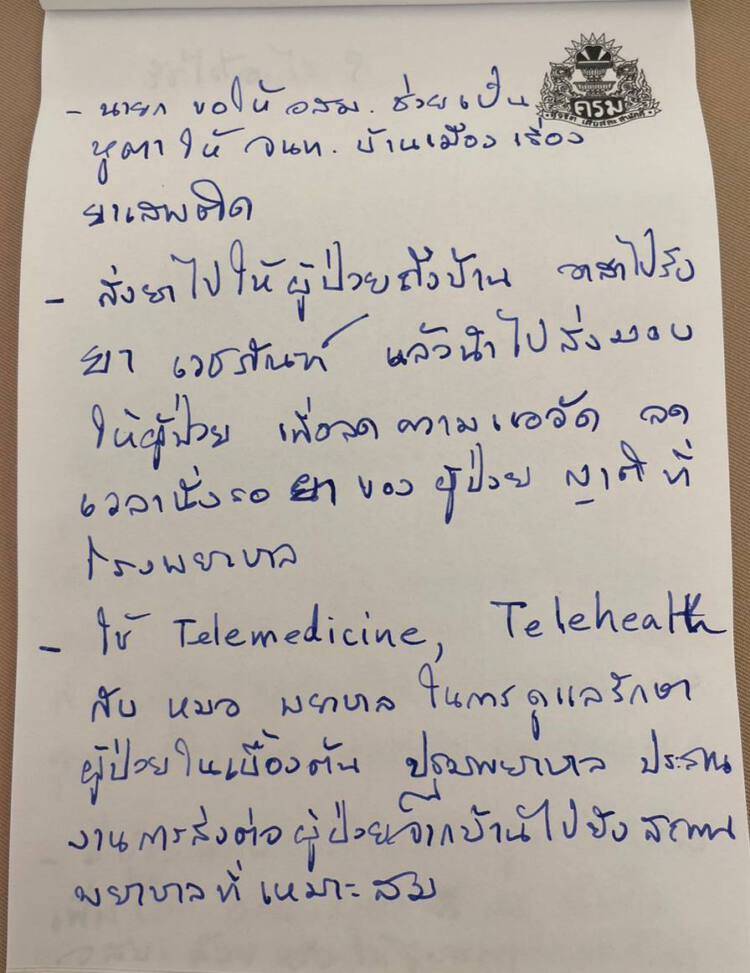 - นายก ขอให้ อสม. ช่วยเป็น
ครม
หูตา ให้ จนท. บ้านเมือง เรื่อง
ยาเสพติด
- ส่งยาไปให้ผู้ป่วยถึงบ้าน อาสาไปรับ
ยา เวชภัณฑ์ แล้วนำไปส่งมอบ
ให้ผู้ป่วย เพื่อลด ความแออัด ลด
เวลานั่งรอ ยา ของ ผู้ป่วย ญาติ ที่
โรงพยาบาล
- ใช้ Telemedicine, Telehealth
กับ หมอ พยาบาล ในการดูแลรักษา
ผู้ป่วยในเบื้องต้น ปฐมพยาบาล ประสาน
งานการส่งต่อ ผู้ป่วยจากบ้านไปยัง สถาน
พยาบาลที่ เหมาะสม